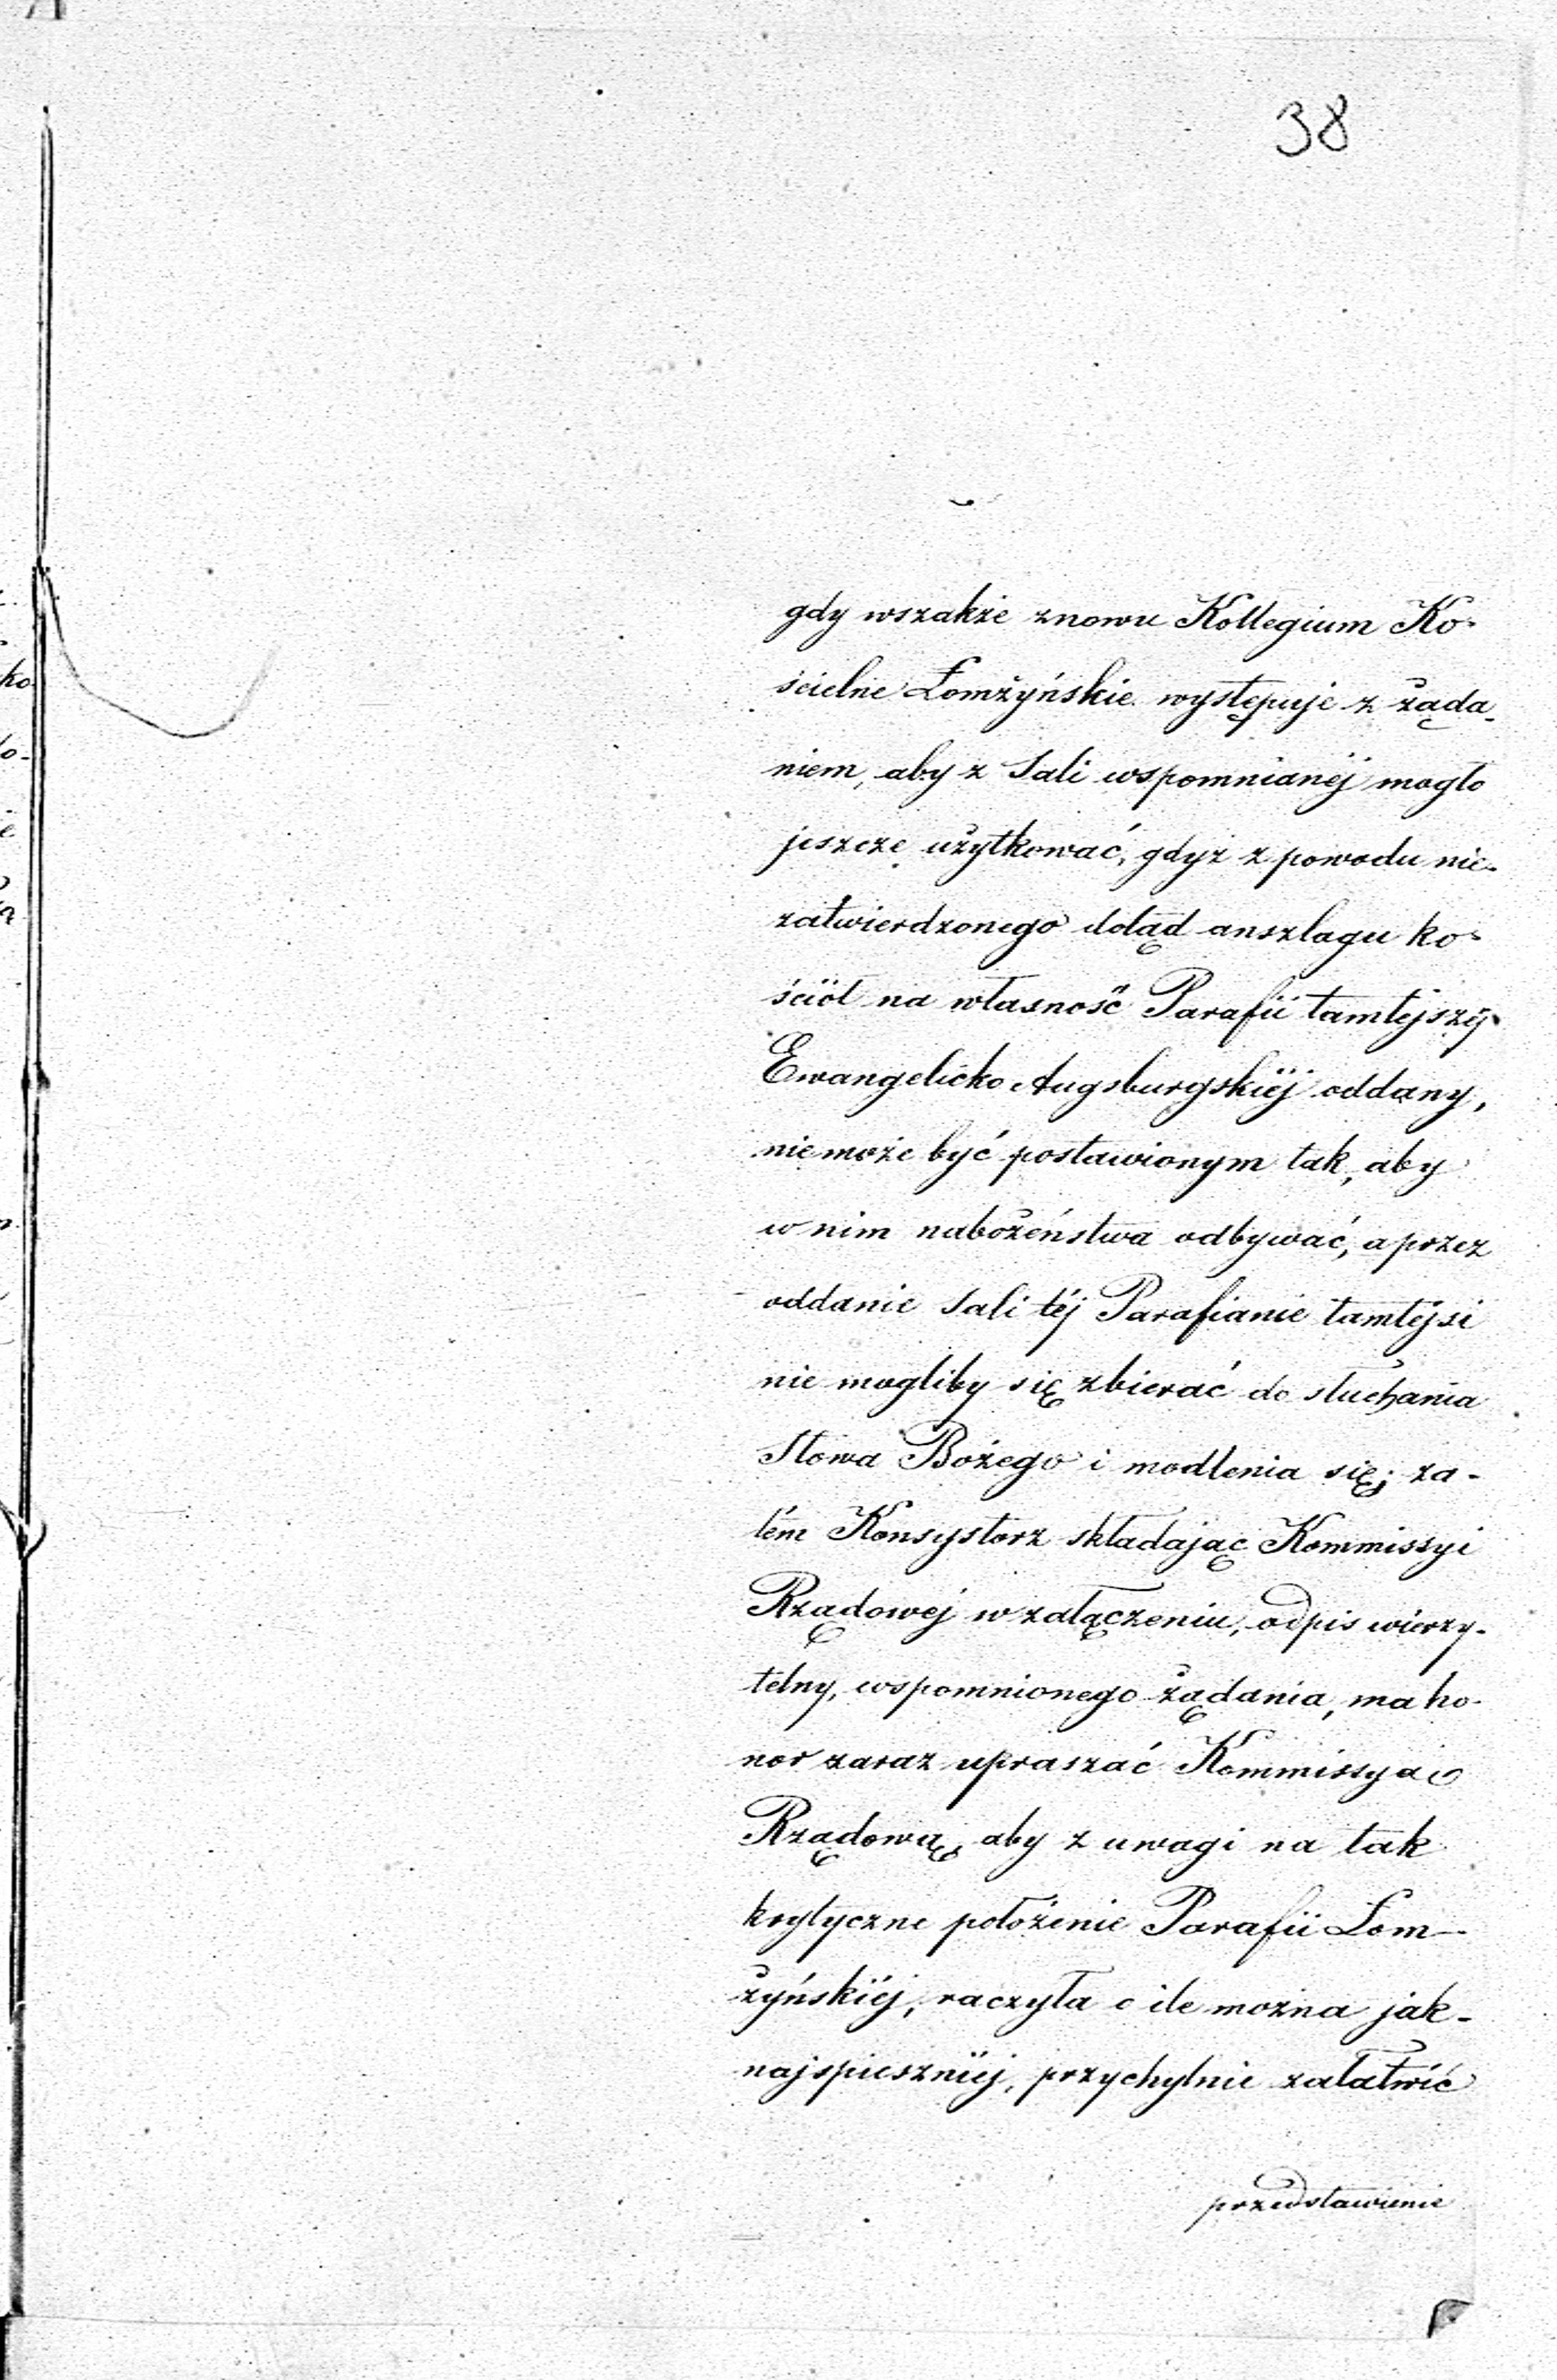 38
gdy wszakże znowu Kollegium Ko-
ścielne Łomżyńskie występuje z żąda-
niem, aby z Sali wspomnianéj mogło
jeszcze użytkować, gdyż z powodu nie-
zatwierdzonego dotąd anszlagu ko-
ściół na własność Parafii tamtejszéj
Ewangelicko Augsburgskiéj oddany,
nie może być postawionym tak, aby
w nim nabożeństwa odbywać, a przez
oddanie Sali téj Parafianie tamtéjsi
nie mogliby się zbierać do słuchania
Słowa Bożego i modlenia się; za-
tém Konsystorz składając Kommissyi
Rządowej w załączeniu, odpis wierzy-
telny, wspomnionego żądania, ma ho-
nor zaraz upraszać Kommissyą
Rządową, aby z uwagi na tak
krytyczne położenie Parafii Łom-
żyńskiéj, raczyła o ile można jak-
najspieszniéj, przychylnie załatwić
przedstawienie